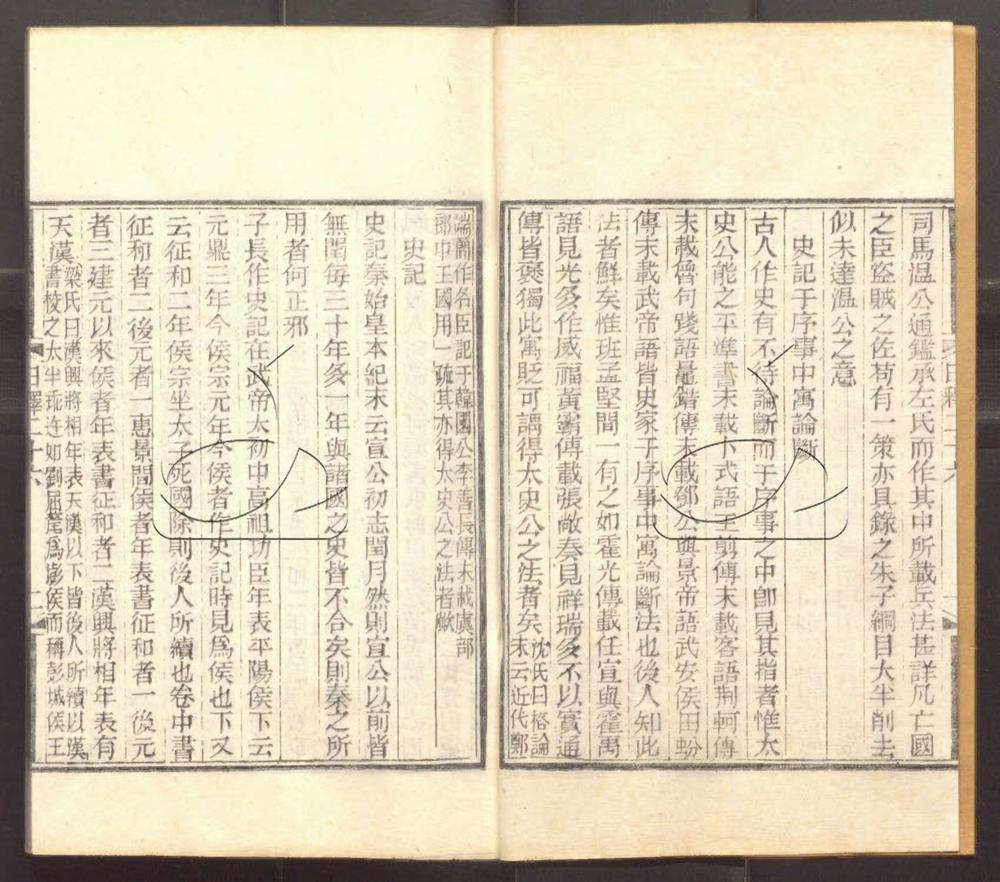 司馬温公通鑑承左氏而作其中所載兵法甚詳凡亡國
之臣盜賊之佐茍有一策亦具錄之朱子綱目大半削去
似未達温公之意
史記于序事中寓論斷
古人作史有不待論斷而于序事之中卽見其指者惟太
史公能之平準書末載卜式語王翦傳末載客語荆軻傳
末載魯句踐語鼂錯傳末載鄧公與景帝語武安侯田蚡
傳末載武帝語皆史家于序事中寓論斷法也後人知此
法者鮮矣惟班孟堅間一有之如霍光傳載任宣與霍禹
語見光多作威福黃霸傳載張敞奏見祥瑞多不以實通
傳皆襃獨此寓貶可謂得太史公之法者矣沈氏曰格論
末云近代鄭
端簡作名臣記于韓國公李善長傳末載虞部
郎中王國用一疏其亦得太史公之法者歟
史記
史記秦始皇本紀末云宣公初志閏月然則宣公以前皆
無閏每三十年多一年與諸國之史皆不合矣則秦之所
用者何正邪
子長作史記在武帝太初中高祖功臣年表平陽侯下云
元鼎三年今侯宗元年今侯者作史記時見爲侯也下又
云征和二年侯宗坐太子死國除則後人所續也卷中書
征和者二後元者一惠景間侯者年表書征和者一後元
者三建元以來侯者年表書征和者二漢興將相年表有
天漢梁氏曰漢興將相年表天漢以下皆後人所續以漢
書校之大半乖迕如劉屈氂爲澎侯而稱彭城侯王
日釋二十六
二